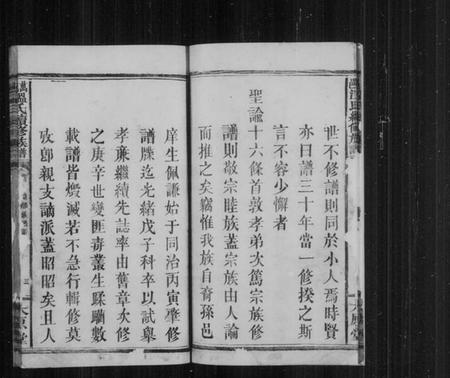 世不修譜則同於小人焉時賢
亦曰譜三十年當一修揆之斯
言不容少懈者
聖諭十六條首敦孝弟次篤宗族修
譜則敬宗睦族蓋宗族由人論
而推之矣竊惟我族自奇孫邑
庠生佩謙始于同治丙寅肇修
譜牒迄光緒戊子科卒以試舉
孝廉繼續先誌率由舊章次修
之庚辛世變匪毒叢生蹂躪數
載譜皆燬滅若不急行輯修莫
攷卽親支嫡派蓋昭昭矣丑人
溫氏續修族譜
三
太原堂